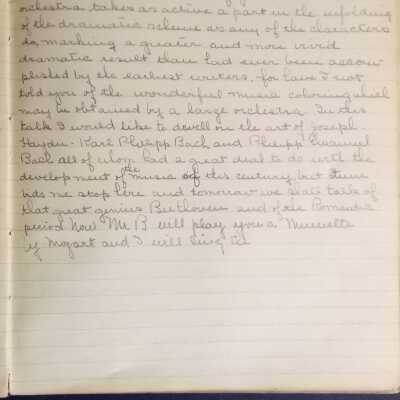 orchestra takes as active a part in the unfolding
of the dramatic scheme as any of the characters
do, marking a greater and more vivid
dramatic result than had ever been accom
plished by the earliest writers, for have I not
told you of the wonderful music coloring which
may be obtained by a large orchestra. In this
talk I would like to dwell on the art of Joseph
Haydn. Karl Philipp Bach and Philipp Emanuel
Bach all of whom had a great deal to do with the
development of the music of this century but time
bids me stop here and tomorrow we shall talk of
that great genius Beethoven and of the Romantic
period. Now Mr B. will play you a Minuette
by Mozart and I will sing